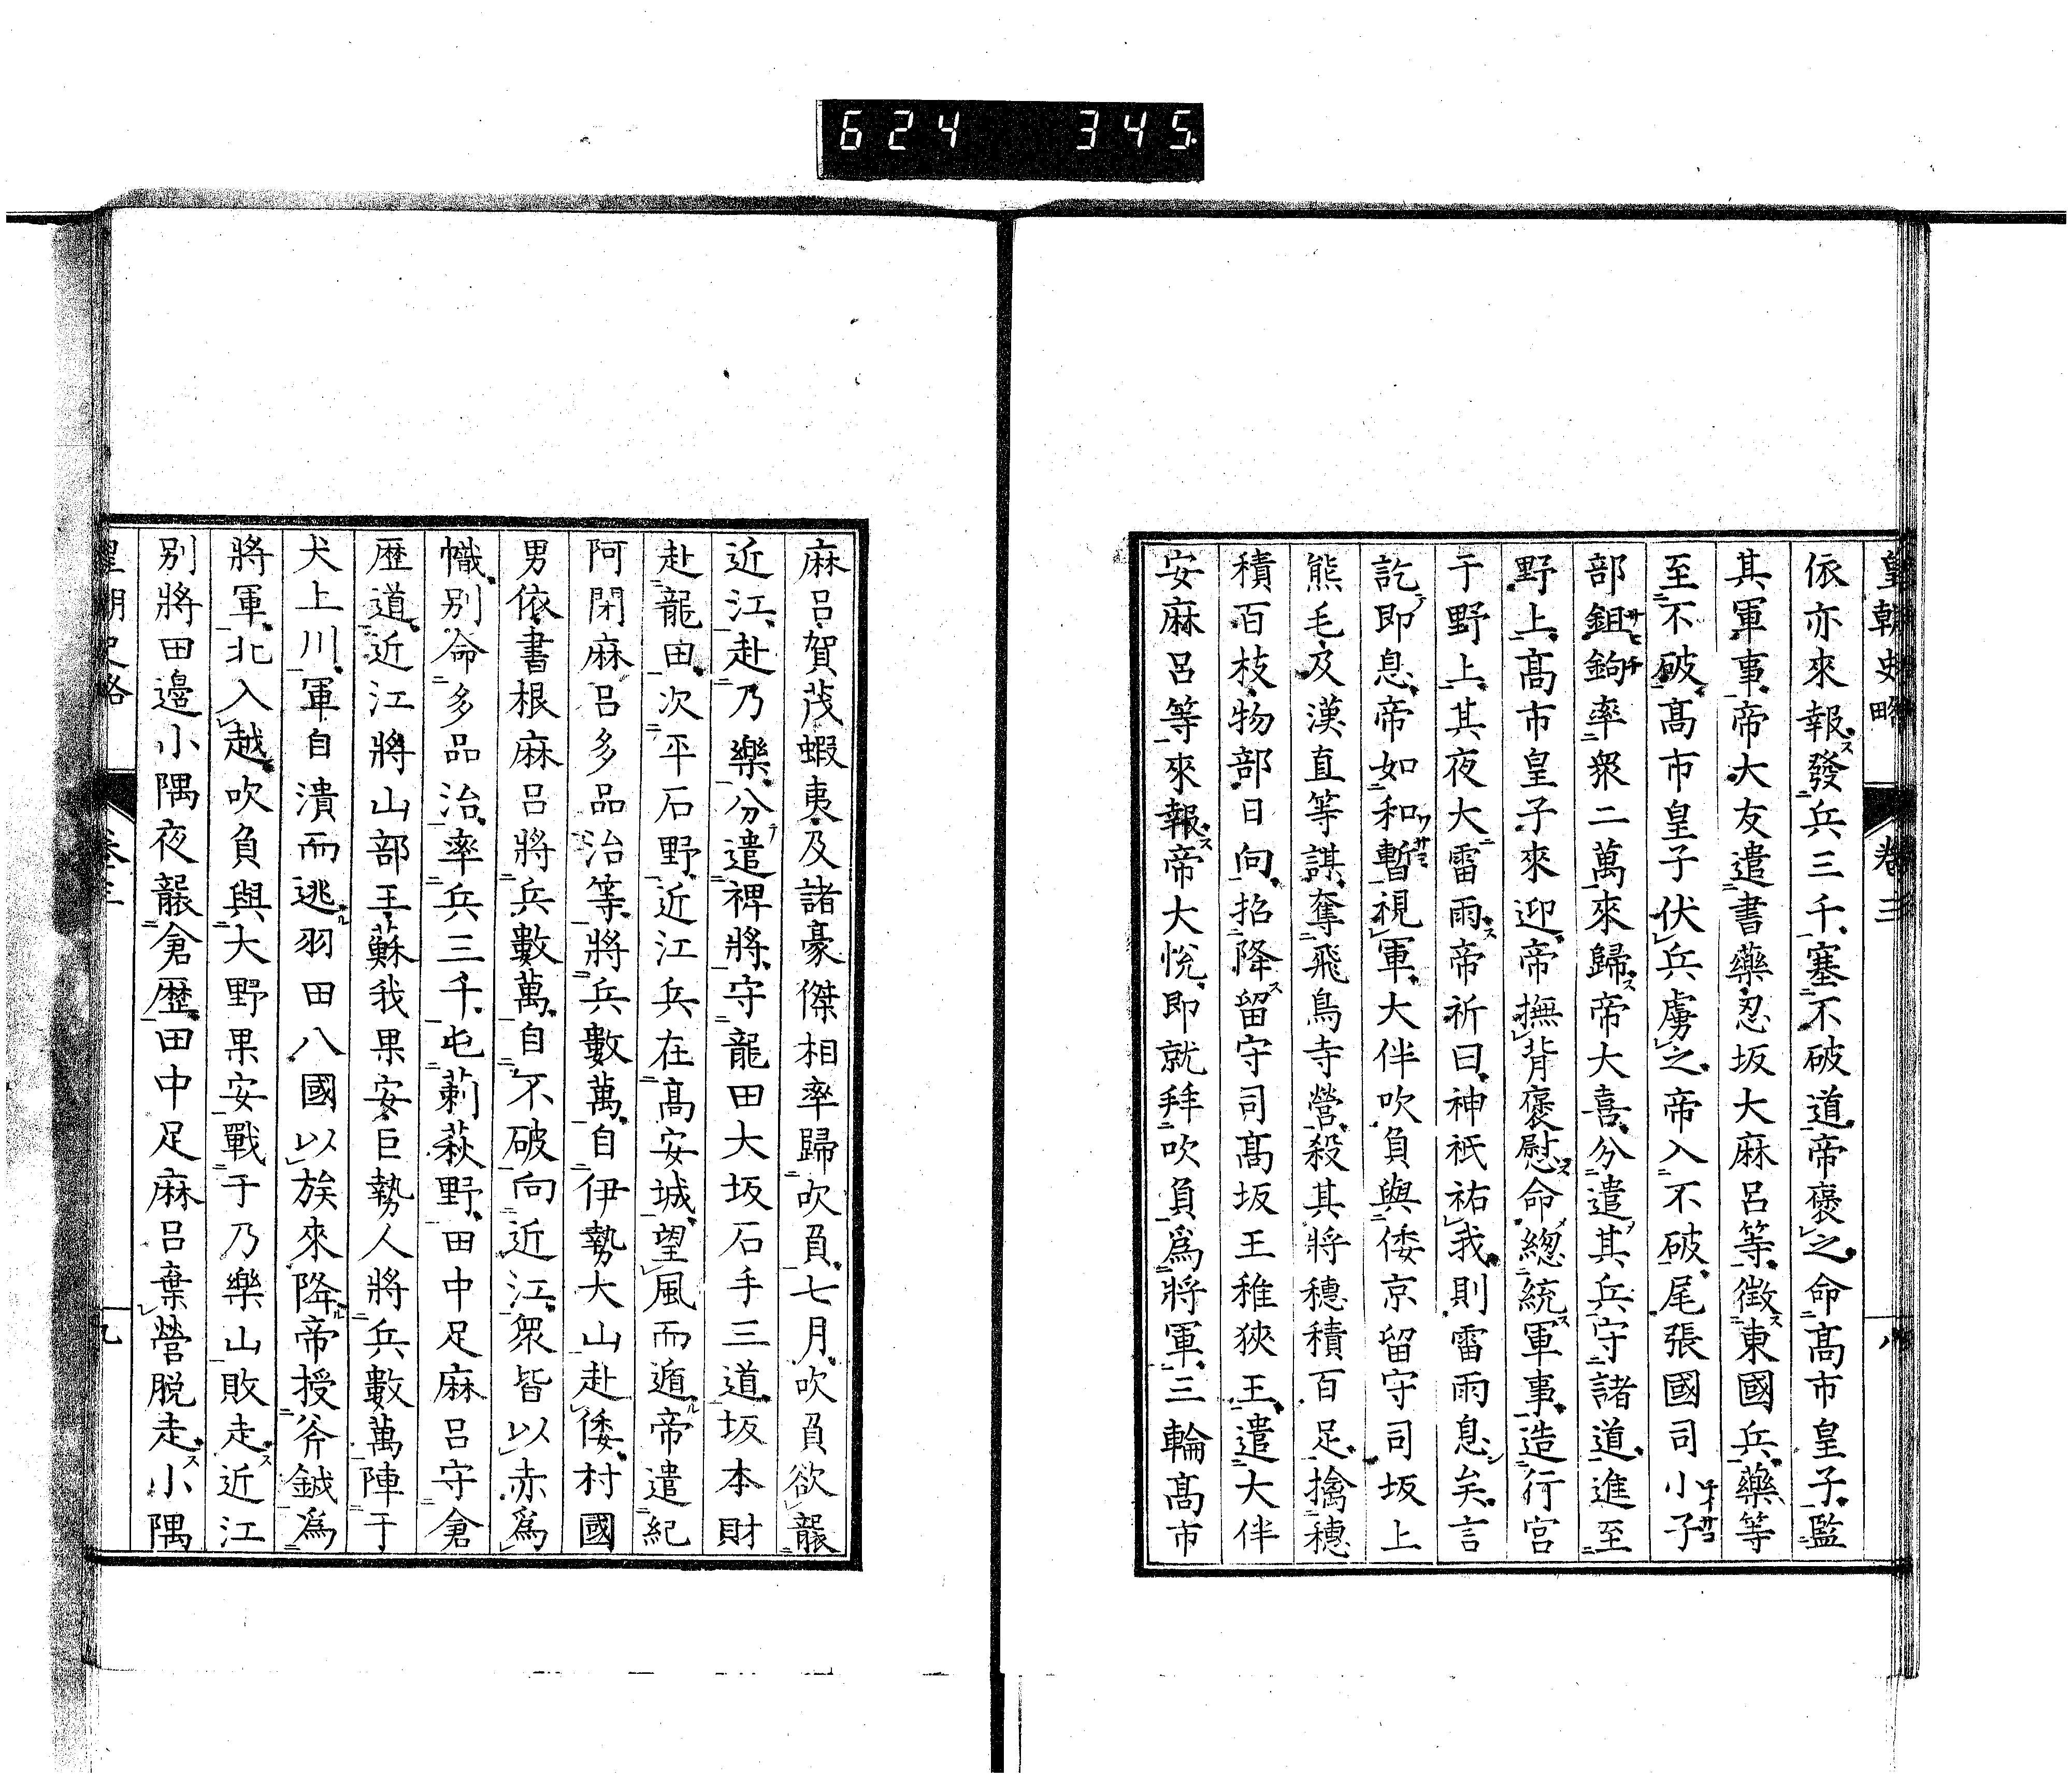 624 345
皇朝史略 卷三 八
依亦來報發兵三千塞不破道帝褒之命髙市皇子監
其軍事帝大友遣書藥忍坂大麻呂等徵東國兵藥等
至不破髙市皇子伏兵虜之帝入不破尾張國司小子
部鉏鉤率衆二萬來歸帝大喜分遣其兵守諸道進至
野上髙市皇子來迎帝撫背褒慰命總統軍事造行宮
于野上其夜大雷雨帝祈曰神祇祐我則雷雨息矣言
訖即息帝如和蹔視軍大伴吹負與倭京留守司坂上
熊毛及漢直等謀奪飛鳥寺營殺其將穗積百足擒穗
積百枝物部日向招降留守司髙坂王稚狹王遣大伴
安麻呂等來報帝大悅即就拜吹負爲將軍三輪髙市
麻呂賀茂蝦夷及諸豪傑相率歸吹負七月吹負欲襲
近江赴乃樂分遣裨將守龍田大坂石手三道坂本財
赴龍田次平石野近江兵在髙安城望風而遁帝遣紀
阿閉麻呂多品治等將兵數萬自伊勢大山赴倭村國
男依書根麻呂將兵數萬自不破向近江衆皆以赤爲
幟別命多品治率兵三千屯莿萩野田中足麻呂守倉
歷道近江將山部王蘇我果安巨勢人將兵數萬陣于
犬上川軍自潰而逃羽田八國以族來降帝授斧鉞爲
將軍北入越吹負與大野果安戰于乃樂山敗走近江
別將田邊小隅夜襲倉歷田中足麻呂棄營脫走小隅
皇朝史略 卷三 九